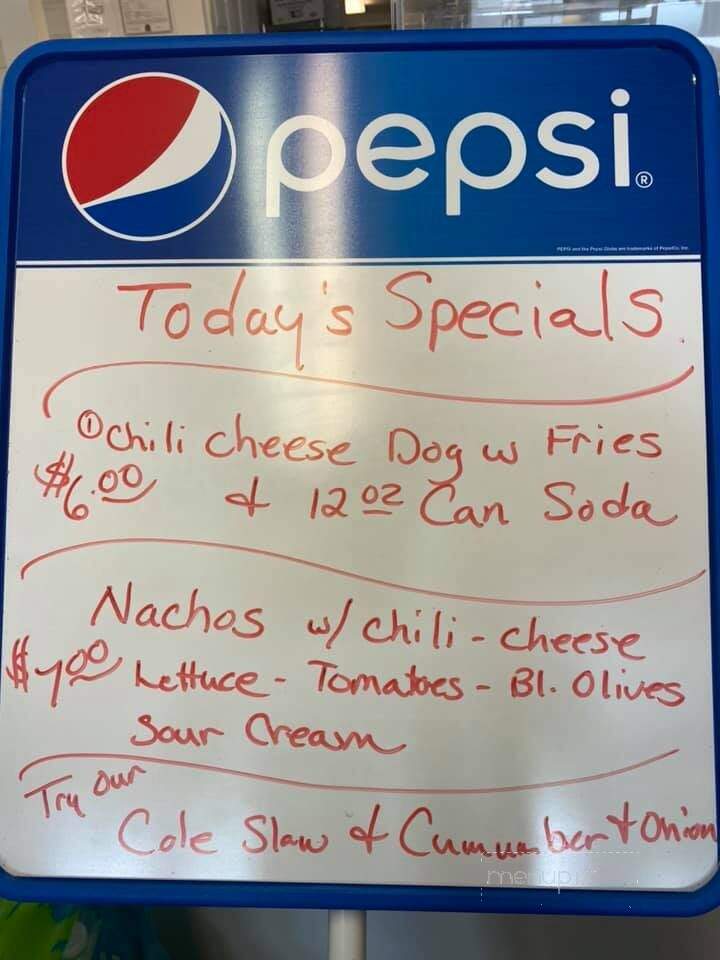 pepsi®
PEPSI and the Pepsi Globe are trademarks of PepsiCo, Inc.
Today's Specials
① Chili cheese Dog w Fries
$6.00 & 12 oz Can Soda
Nachos w/ chili - cheese
$7.00 Lettuce - Tomatoes - Bl. Olives
Sour Cream
Try our
Cole Slaw & Cumumber + Onion